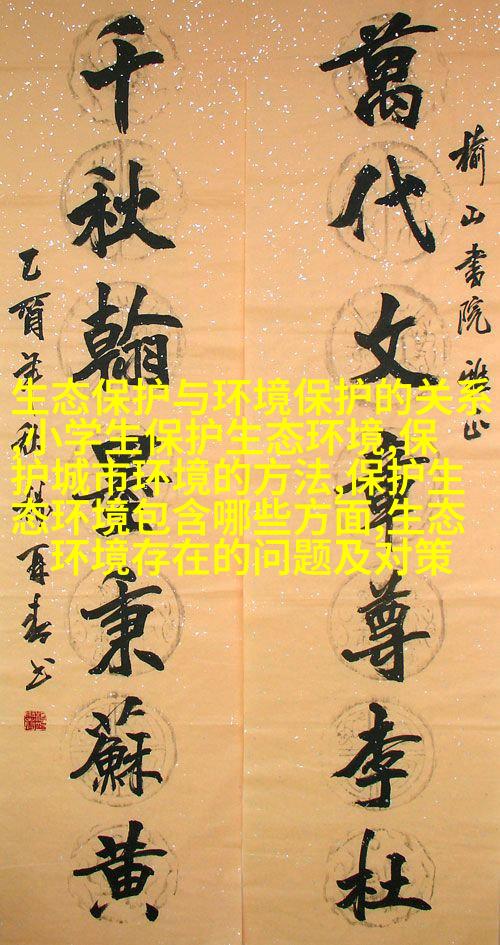 榆山書院雅正
萬代文章尊李杜
千秋翰墨秉蘇黄
乙酉年秋楊再春书
生态保护与环境保护的关系
,小学生保护生态环境,保
护城市环境的方法,保护生
态环境包含哪些方面,生态
环境存在的问题及对策